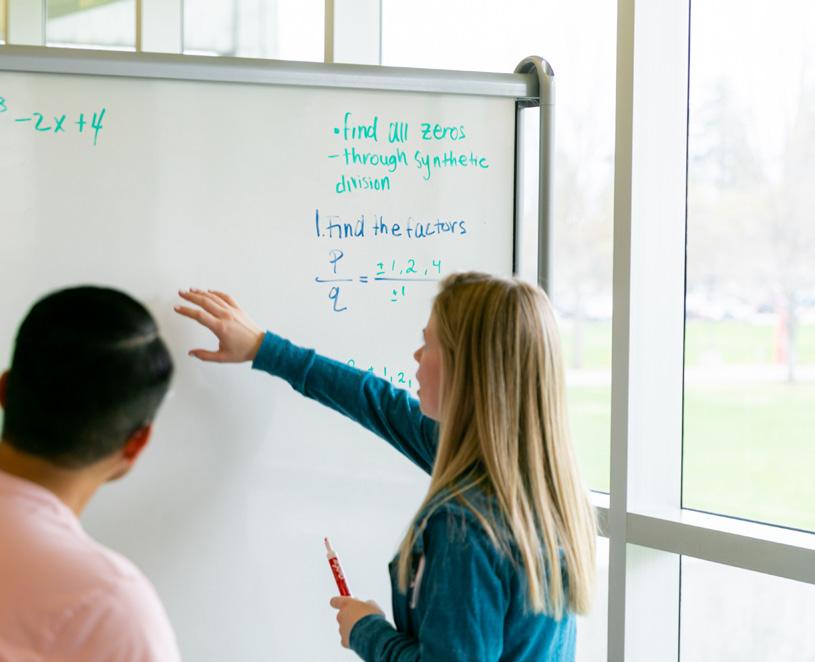 3 -2x +4
• find all zeros
- through synthetic
division
1. Find the factors
P/q = ±1, 2, 4/±1
± 1, 2,